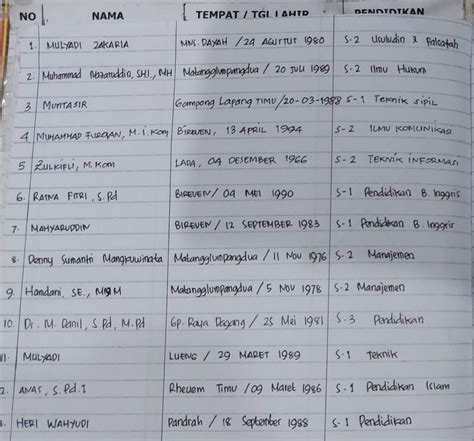 NO NAMA TEMPAT / TGL LAHIR PENDIDIKAN
1. MULYADI ZAKARIA MNS. DAYAH / 24 AGUSTUT 1980 S-2 Usuludin & Falcafah
2. Muhammad SHI., MH Matangglumpangdua / 20 JULI 1989 S-2 Ilmu Hukum
3 MUNTASIR Gampong Lapang TIMU / 20-03-1988 S-1 Teknik Sipil
4 MUHAMMAD FURQAN, M.I.Kom BIREUEN, 13 APRIL 1994 S-2 ILMU KOMUNIKASI
5 ZULKIFLI, M.Kom LADA, 04 DESEMBER 1966 S-2 TEKNIK INFORMASI
6. RATNA FITRI, S.Pd BIREUEN / 04 MEI 1990 S-1 Pendidikan B. Inggris
7. MAHYARUDDIN BIREUEN / 12 SEPTEMBER 1983 S-1 Pendidikan B. Inggris
8. Denny Sumantri Mangkuwinata Matangglumpangdua / 11 Nov 1976 S-2 Manajemen
9. Hamdani, SE., MSM Matangglumpangdua / 5 Nov 1978 S-2 Manajemen
10. Dr. M. Danil, S.Pd, M.Pd Gp. Raya Dagang / 25 Mei 1981 S-3 Pendidikan
11. MULYADI LUENG / 29 MARET 1989 S-1 Teknik
2. ANAS, S.Pd.I Rheuem Timu / 09 Maret 1986 S-1 Pendidikan Islam
3. HERI WAHYUDI Pandrah / 18 September 1988 S-1 Pendidikan